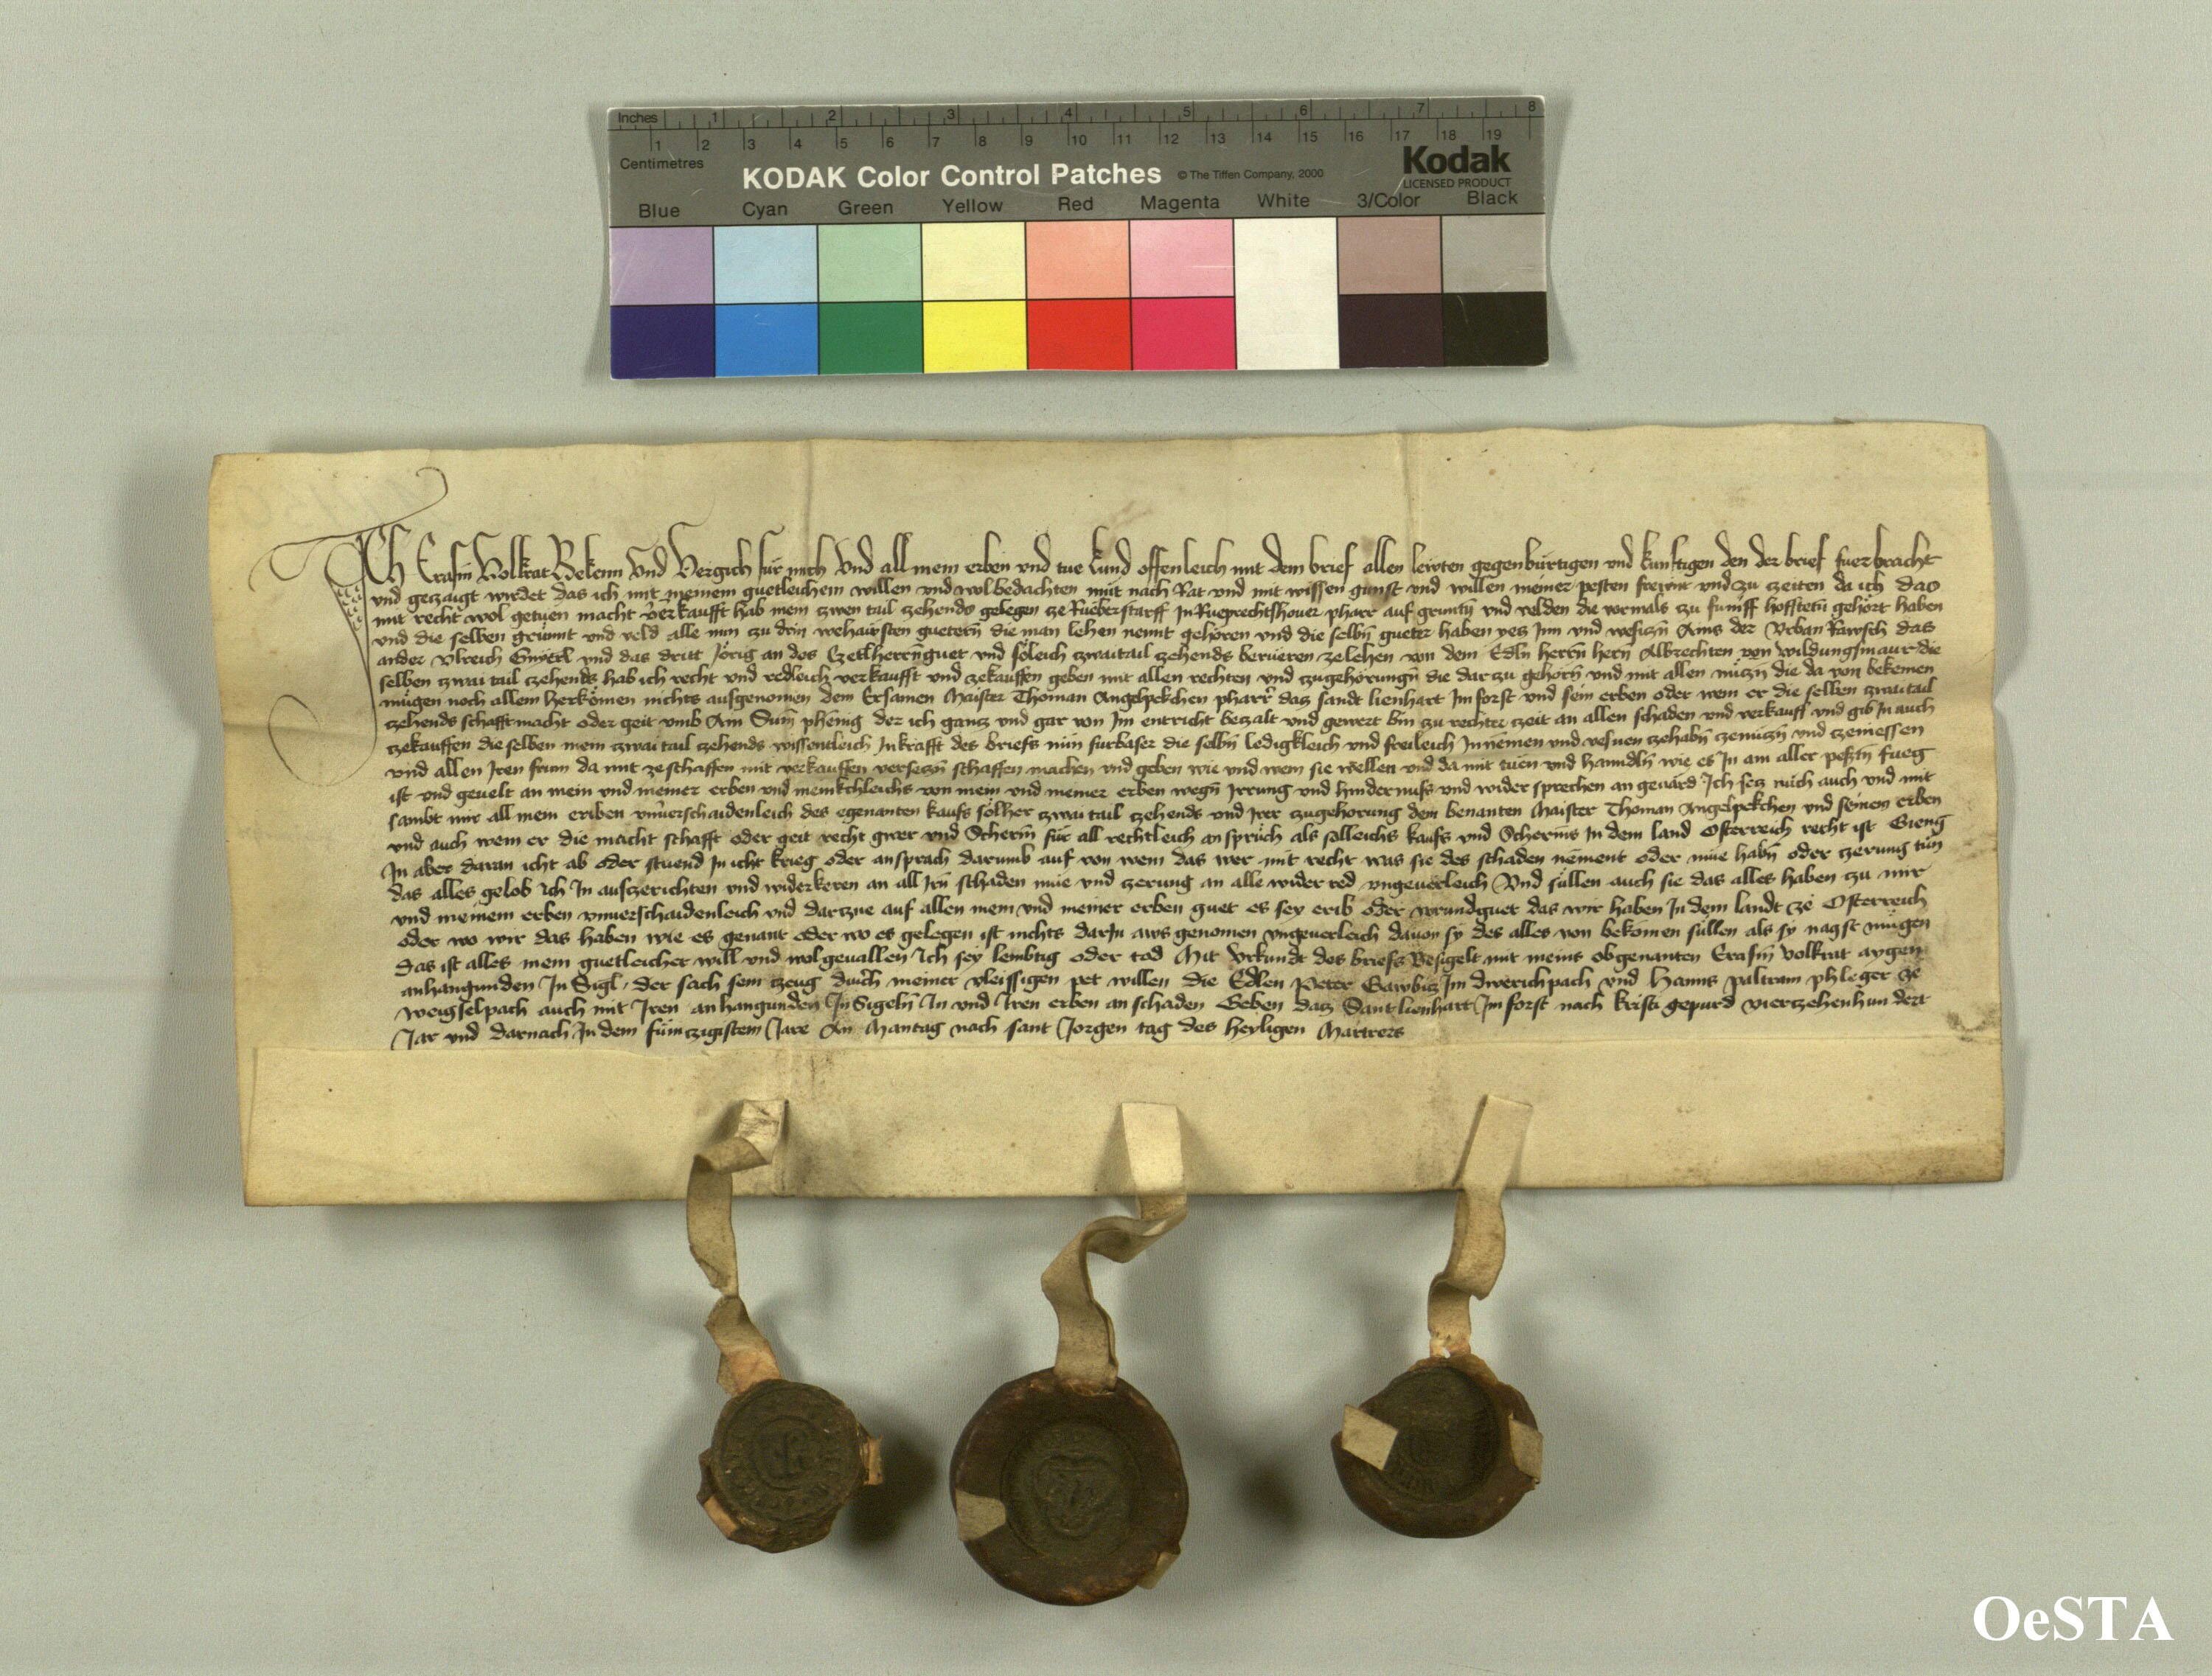 Inches 1 2 3 4 5 6 7 8
1 2 3 4 5 6 7 8 9 10 11 12 13 14 15 16 17 18 19
Centimetres
KODAK Color Control Patches © The Tiffen Company, 2000 Kodak
LICENSED PRODUCT
Blue Cyan Green Yellow Red Magenta White 3/Color Black
Ich Erasm Volkrat Bekenn Vnd Vergich für mich Vnd all mein erben vnd tue kund offenleich mit dem brief allen lewten gegenbürtigen vnd kunftigen den der brief fuerbracht
vnd gezaigt wirdet das ich mit meinem guetleichem willen vnd wolbedachten müt nach Rat vnd mit wissen gunst vnd willen meiner pesten frewnt vnd zu zeiten da ich das
mit recht wol getuen macht verkaufft hab mein zwen tail zehends gelegen ze Rueberstarff In Rueprechtzhouer pharr auf grüntn vnd velden die vormals zu funiff hofstetn gehört haben
vnd die selben grünnt vnd veld alle nun zu drin guetern die man lehen nennt gehören vnd die selbn gueter haben yez Inn vnd Ains der Vrban Rawsch das
ander Vlreich vnd das dritt Jörig an des vnd söleich zwaitail zehends berüeren ze lehen von dem Edln herrn hern Albrechten von wildungsmaur die
selben zwai tail zehends hab ich recht vnd redleich verkaufft vnd zekauffen geben mit allen rechten vnd zugehörungn die dar zu gehörn vnd mit allen nüzn die da von bekemen
mügen noch allem herkömen nichts ausgenomen dem Ersamen Maister Thoman Angelpekchen pharrer daz sandt lienhart Im forst vnd sein erben oder wem er die selben zwai tail
zehends schafft macht oder geit vmb Ain Sum phenig der ich gancz vnd gar von Im entricht bezalt vnd gewert bin zu rechter zeit an allen schaden vnd verkauff vnd gib In auch
zekauffen die selben mein zwai tail zehends wissentleich In krafft des briefs nün furbaser die selbn ledigkleich vnd freileich Innemen vnd zehabn zenüzn vnd zeniessen
vnd allen Iren frum da mit ze schaffen mit verkauffen versezn schaffen machen vnd geben wie vnd wem sie wellen vnd da mit tuen vnd hanndln wie es In am aller peßtn fueg
ist vnd geuelt an mein vnd meiner erben vnd menikchleichs von mein vnd meiner erben wegn Irrung vnd hindernuss vnd wider sprechen an geuärd Ich sez mich auch vnd mit
sambt mir all mein eriben vnuerschaidenleich des egenanten kaufs sölher zwai tail zehends vnd Irer zugehorung dem benanten Maister Thoman Angelpekchen vnd seinen erben
vnd auch wem er die macht schafft oder geit recht gwer vnd Scherm für all rechtleich anspruch als solleichs kaufs vnd Scherms In dem land Osterreich recht ist Gieng
In aber daran icht ab oder stuend In icht krieg oder ansprach darumb auf von wem das wer mit recht was sie des schaden nement oder müe habn oder zerung tün
das alles gelob ich In auszerichten vnd widerkeren an all Irn schaden müe vnd zerung an alle wider red vngeuerleich Vnd süllen auch sie das alles haben zu mir
vnd meinem erben vnuerschaidenleich vnd dartzue auf allen mein vnd meiner erben guet es sey erib oder das wir haben In dem landt ze Osterreich
oder wo wir das haben wie es genant oder wo es gelegen ist nichts darIn aws genomen vngeuerleich dauon sy des alles von bekomen süllen als sy nagst mügen
das ist alles mein guetleicher will vnd wolgeuallen Ich sey lembtig oder tod Mit Vrkundt des briefs Besigelt mit meins obgenanten Erasm Volkrat aygen
anhangunden In Sigl, der sach sein tzeug durch meiner vleissigen pet willen die Edlen Peter Im dwerichpach vnd Hanns Paltram phleger ze
weigselpach auch mit Iren anhangunden In Sigeln In vnd Iren erben an schaden Geben daz Sant lienhart Im forst nach kristi gepurd viertzehenhundert
Jar vnd darnach In dem fümfzigistem Jare An Mantag nach sant Jorgen tag des heyligen Martrers
OeSTA